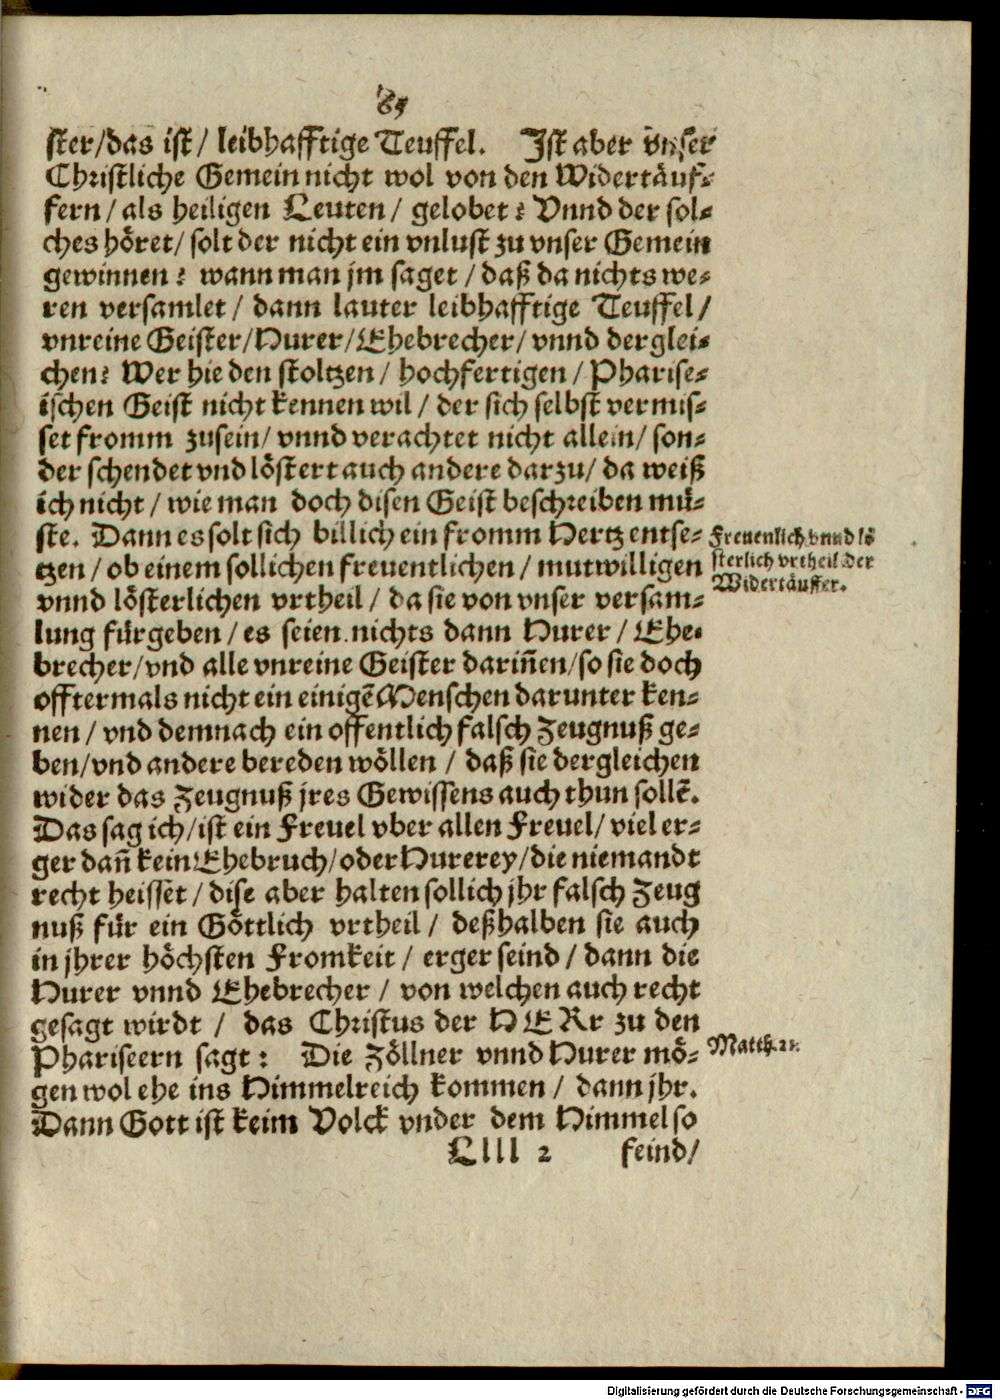 65
ster/das ist/ leibhafftige Teuffel. Jst aber vnser
Christliche Gemein nicht wol von den Widertäuf⸗
fern/ als heiligen Leuten/ gelobet? Vnnd der sol⸗
ches höret/ solt der nicht ein vnlust zu vnser Gemein
gewinnen? wann man jm saget/ daß da nichts we⸗
ren versamlet/ dann lauter leibhafftige Teuffel/
vnreine Geister/Hurer/Ehebrecher/ vnnd derglei⸗
chen? Wer hie den stoltzen/ hochfertigen/ Pharise⸗
ischen Geist nicht kennen wil/ der sich selbst vermis⸗
set fromm zusein/ vnnd verachtet nicht allein/ son⸗
der schendet vnd löstert auch andere darzu/ da weiß
ich nicht/ wie man doch disen Geist beschreiben mü⸗
ste. Dann es solt sich billich ein fromm Hertz entse⸗
tzen/ ob einem sollichen freuentlichen/ mutwilligen
vnnd lösterlichen vrtheil/ da sie von vnser versam⸗
lung fürgeben/ es seien nichts dann Hurer/ Ehe⸗
brecher/vnd alle vnreine Geister dariñen/so sie doch
offtermals nicht ein einigẽ Menschen darunter ken⸗
nen/ vnd demnach ein offentlich falsch Zeugnuß ge⸗
ben/vnd andere bereden wöllen/ daß sie dergleichen
wider das Zeugnuß jres Gewissens auch thun sollẽ.
Das sag ich/ist ein Freuel vber allen Freuel/ viel er⸗
ger dañ kein Ehebruch/oder Hurerey/die niemandt
recht heissët/ dise aber halten sollich jhr falsch Zeug
nuß für ein Göttlich vrtheil/ deßhalben sie auch
in jhrer höchsten Fromkeit/ erger seind/ dann die
Hurer vnnd Ehebrecher/ von welchen auch recht
gesagt wirdt/ das Christus der HERr zu den
Phariseern sagt: Die Zöllner vnnd Hurer mö⸗
gen wol ehe ins Himmelreich kommen/ dann jhr.
Dann Gott ist keim Volck vnder dem Himmel so
Llll 2 feind/
Freuenlich vnnd lö
sterlich vrtheil der
Widertäuffer.
Matth. 21.
Digitalisierung gefördert durch die Deutsche Forschungsgemeinschaft - DFG